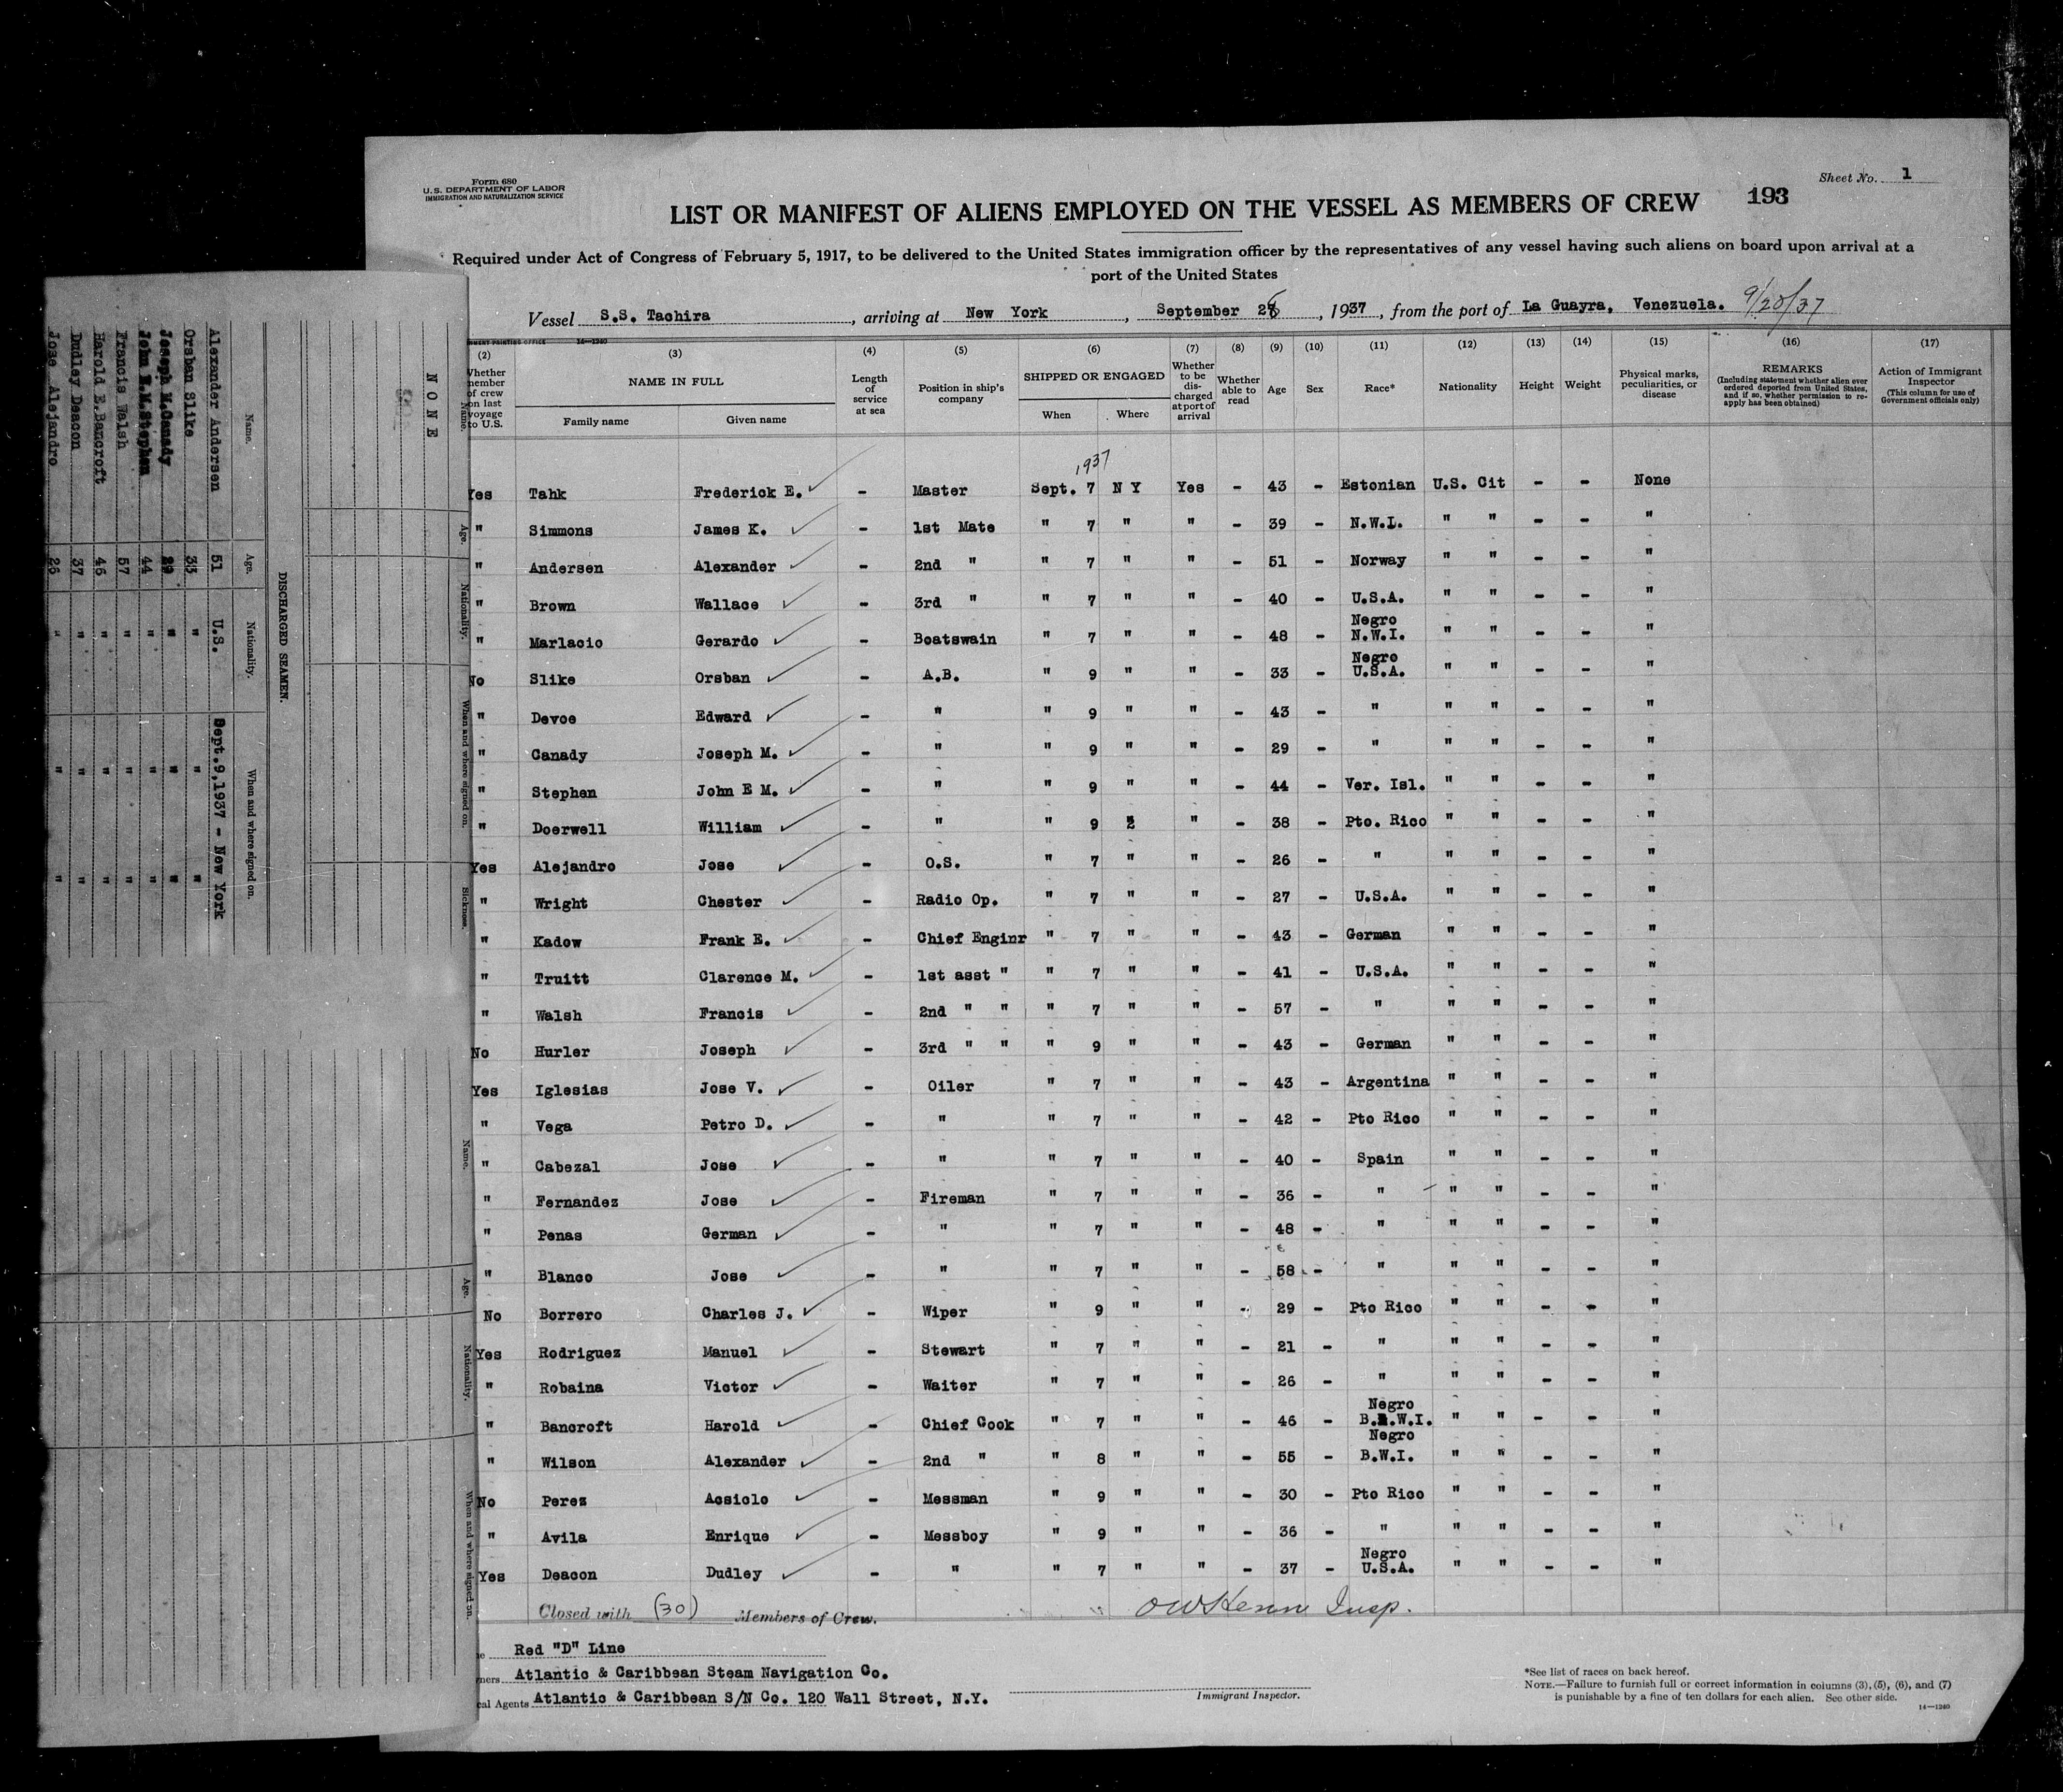 Form 680
U.S. DEPARTMENT OF LABOR
IMMIGRATION AND NATURALIZATION SERVICE
Sheet No. 1
LIST OR MANIFEST OF ALIENS EMPLOYED ON THE VESSEL AS MEMBERS OF CREW 193
Required under Act of Congress of February 5, 1917, to be delivered to the United States immigration officer by the representatives of any vessel having such aliens on board upon arrival at a
port of the United States
Vessel S.S. Tachira, arriving at New York, September 28, 1937, from the port of La Guayra, Venezuela. 9/28/37
14—1240
(2) (3) (4) (5) (6) (7) (8) (9) (10) (11) (12) (13) (14) (15) (16) (17)
Whether member of crew on last voyage to U.S.
NAME IN FULL
Family name Given name
Length of service at sea
Position in ship's company
SHIPPED OR ENGAGED
When Where
Whether to be discharged at port of arrival
Whether able to read
Age Sex Race* Nationality Height Weight
Physical marks, peculiarities, or disease
REMARKS
(Including statement whether alien ever ordered deported from United States, and if so, whether permission to reapply has been obtained)
Action of Immigrant Inspector
(This column for use of Government officials only)
1937
Yes Tahk Frederick E. - Master Sept. 7 N Y Yes - 43 - Estonian U.S. Cit - - None
" Simmons James K. - 1st Mate " 7 " " - 39 - N.W.I. " " - - "
" Andersen Alexander - 2nd " " 7 " " - 51 - Norway " " - - "
" Brown Wallace - 3rd " " 7 " " - 40 - U.S.A. " " - - "
" Marlacio Gerardo - Boatswain " 7 " " - 48 - Negro N.W.I. " " - - "
No Slike Orsban - A.B. " 9 " " - 33 - Negro U.S.A. " " - - "
" Devoe Edward - " " 9 " " - 43 - " " " - - "
" Canady Joseph M. - " " 9 " " - 29 - " " " - - "
" Stephen John E M. - " " 9 " " - 44 - Ver. Isl. " " - - "
" Doerwell William - " " 9 " - 38 - Pto. Rico " " - - "
Yes Alejandro Jose - O.S. " 7 " " - 26 - " " " - - "
" Wright Chester - Radio Op. " 7 " " - 27 - U.S.A. " " - - "
" Kadow Frank E. - Chief Enginr " 7 " " - 43 - German " " - - "
" Truitt Clarence M. - 1st asst " " 7 " " - 41 - U.S.A. " " - - "
" Walsh Francis - 2nd " " " 7 " " - 57 - " " " - - "
No Hurler Joseph - 3rd " " " 9 " " - 43 - German " " - - "
Yes Iglesias Jose V. - Oiler " 7 " " - 43 - Argentina " " - - "
" Vega Petro D. - " " 7 " " - 42 - Pto Rico " " - - "
" Cabezal Jose - " " 7 " " - 40 - Spain " " - - "
" Fernandez Jose - Fireman " 7 " " - 36 - " " " - - "
" Penas German - " " 7 " " - 48 - " " " - - "
" Blanco Jose - " " 7 " " - 58 - " " " - - "
No Borrero Charles J. - Wiper " 9 " " - 29 - Pto Rico " " - - "
Yes Rodriguez Manuel - Stewart " 7 " " - 21 - " " " - - "
" Robaina Victor - Waiter " 7 " " - 26 - " " " - - "
" Bancroft Harold - Chief Cook " 7 " " - 46 - Negro B.W.I. " " - - "
" Wilson Alexander - 2nd " " 8 " " - 55 - Negro B.W.I. " " - - "
No Perez Acsiclo - Messman " 9 " " - 30 - Pto Rico " " - - "
" Avila Enrique - Messboy " 9 " " - 36 - " " " - - "
Yes Deacon Dudley - " " 7 " " - 37 - Negro U.S.A. " " - - "
Closed with (30) Members of Crew.
Insp.
Red "D" Line
Atlantic & Caribbean Steam Navigation Co.
Atlantic & Caribbean S/N Co. 120 Wall Street, N.Y.
Immigrant Inspector.
*See list of races on back hereof.
NOTE.—Failure to furnish full or correct information in columns (3), (5), (6), and (7)
is punishable by a fine of ten dollars for each alien. See other side.
14—1240
NONE
Name. Age. Nationality. When and where signed on. Sickness.
Name. Age. Nationality. When and where signed on.
DISCHARGED SEAMEN.
Name. Age. Nationality. When and where signed on.
Alexander Andersen 51 U.S. Sept.9,1937 - New York
Orsban Slike 33 " " "
Joseph M.Canady 29 " " "
John E.M.Stephen 44 " " "
Francis Walsh 57 " " "
Harold E.Bancroft 46 " " "
Dudley Deacon 37 " " "
Jose Alejandro 26 " " "